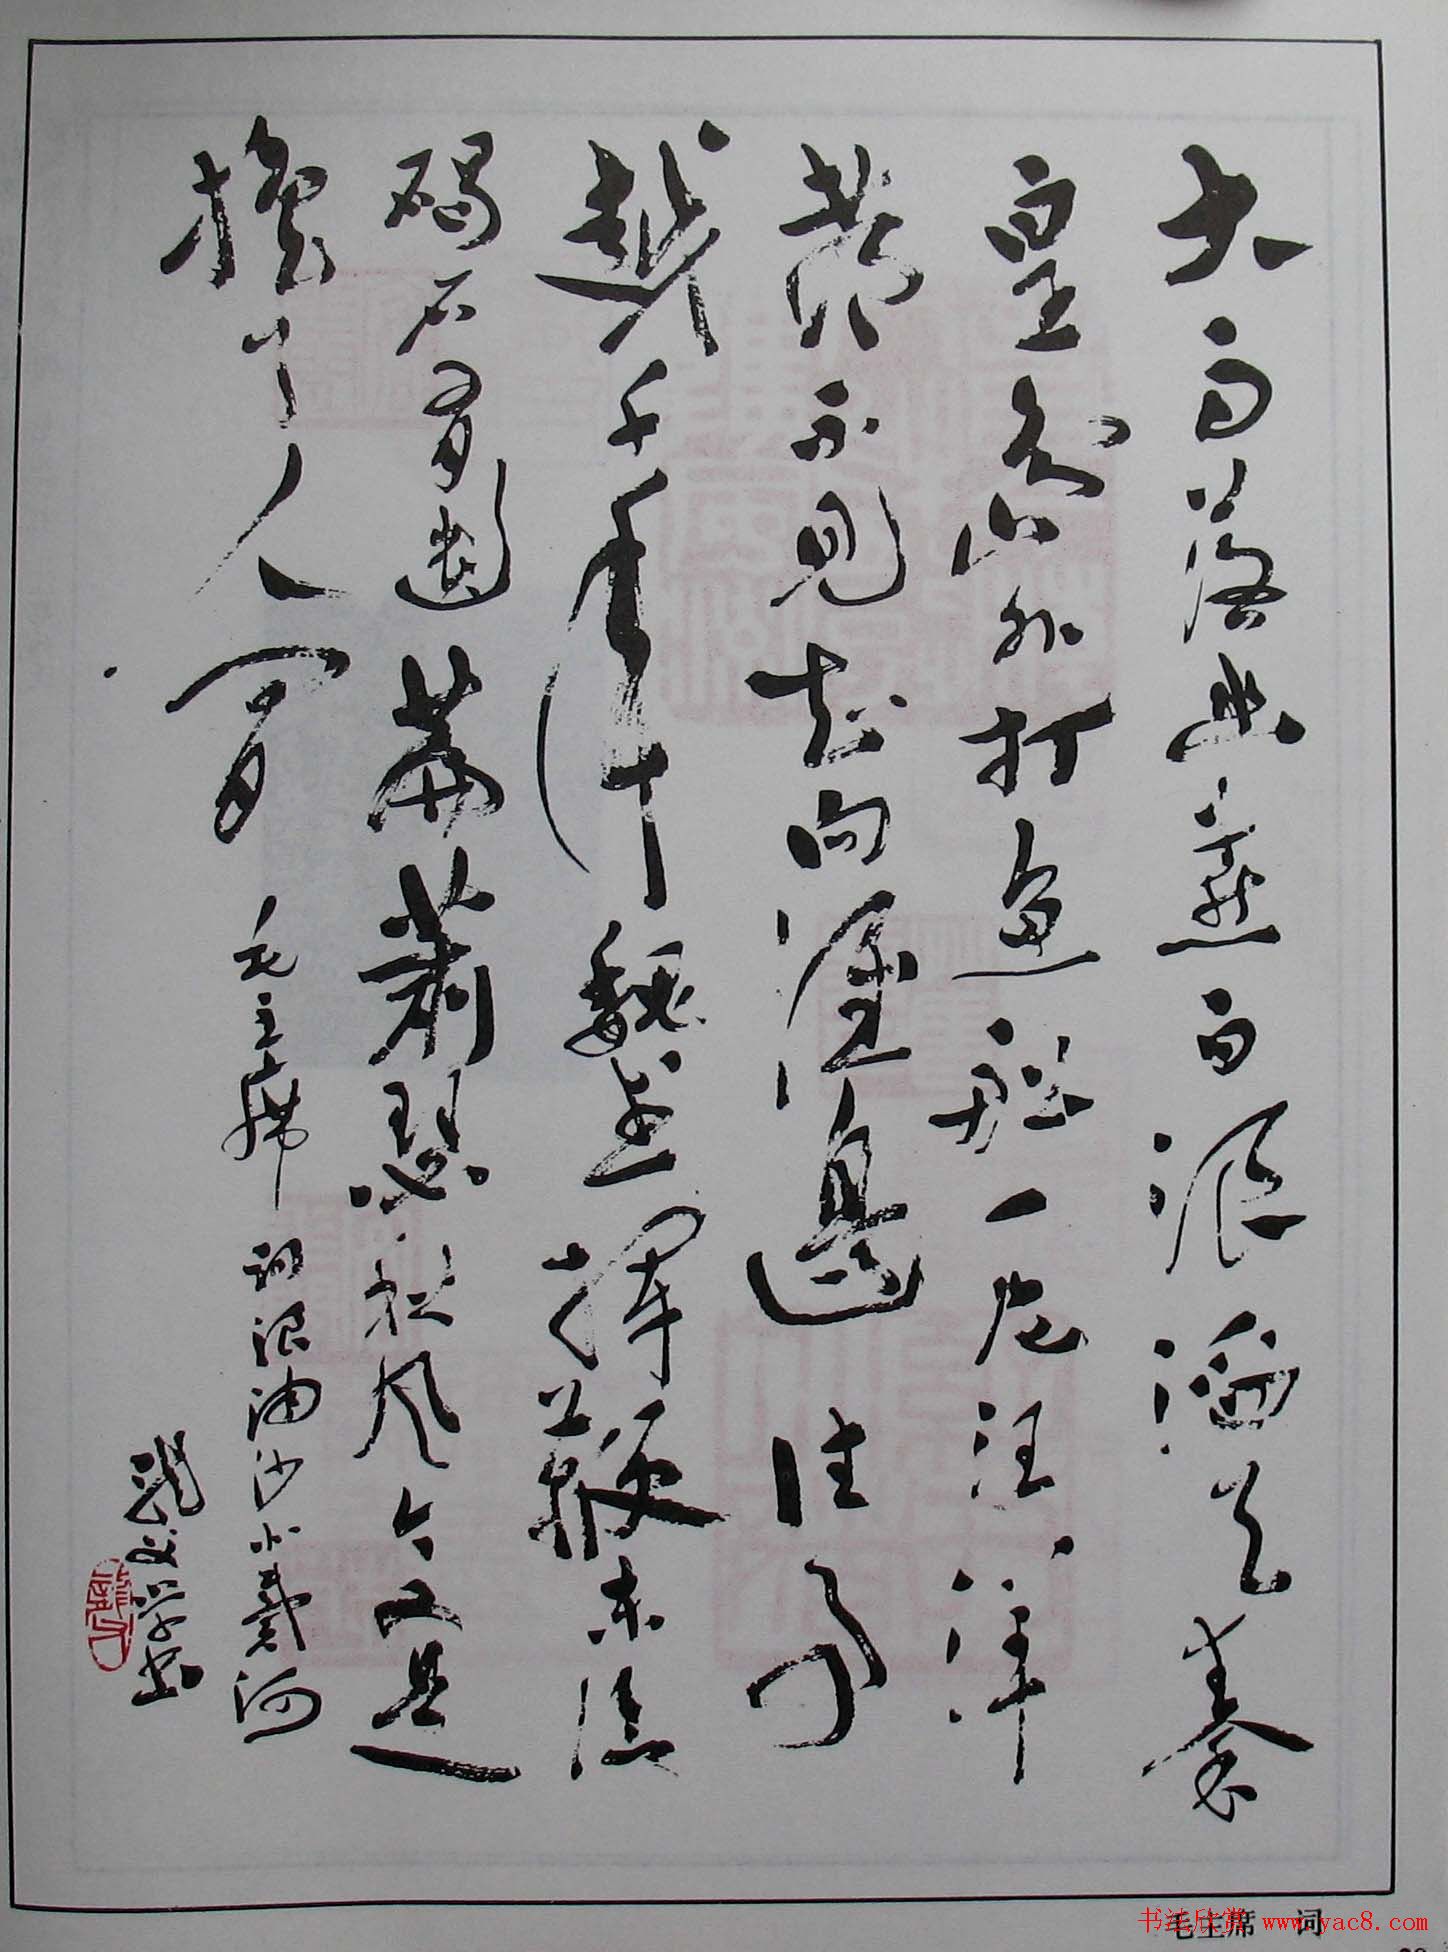 大雨落幽燕白浪滔天秦
皇島外打魚船一片汪洋
都不見知向誰邊往事
越千年魏武揮鞭東臨
碣石有遺篇蕭瑟秋風今又是
換了人間 毛主席 詞浪淘沙北戴河
毛主席 词
书法欣赏 www.yac8.com